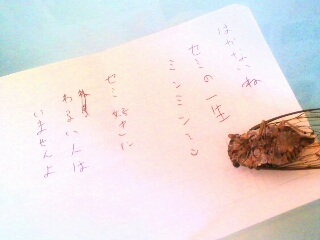 はかないね
セミの一生
ミンミンミン
セミ好きに
わるい人は
いませんよ